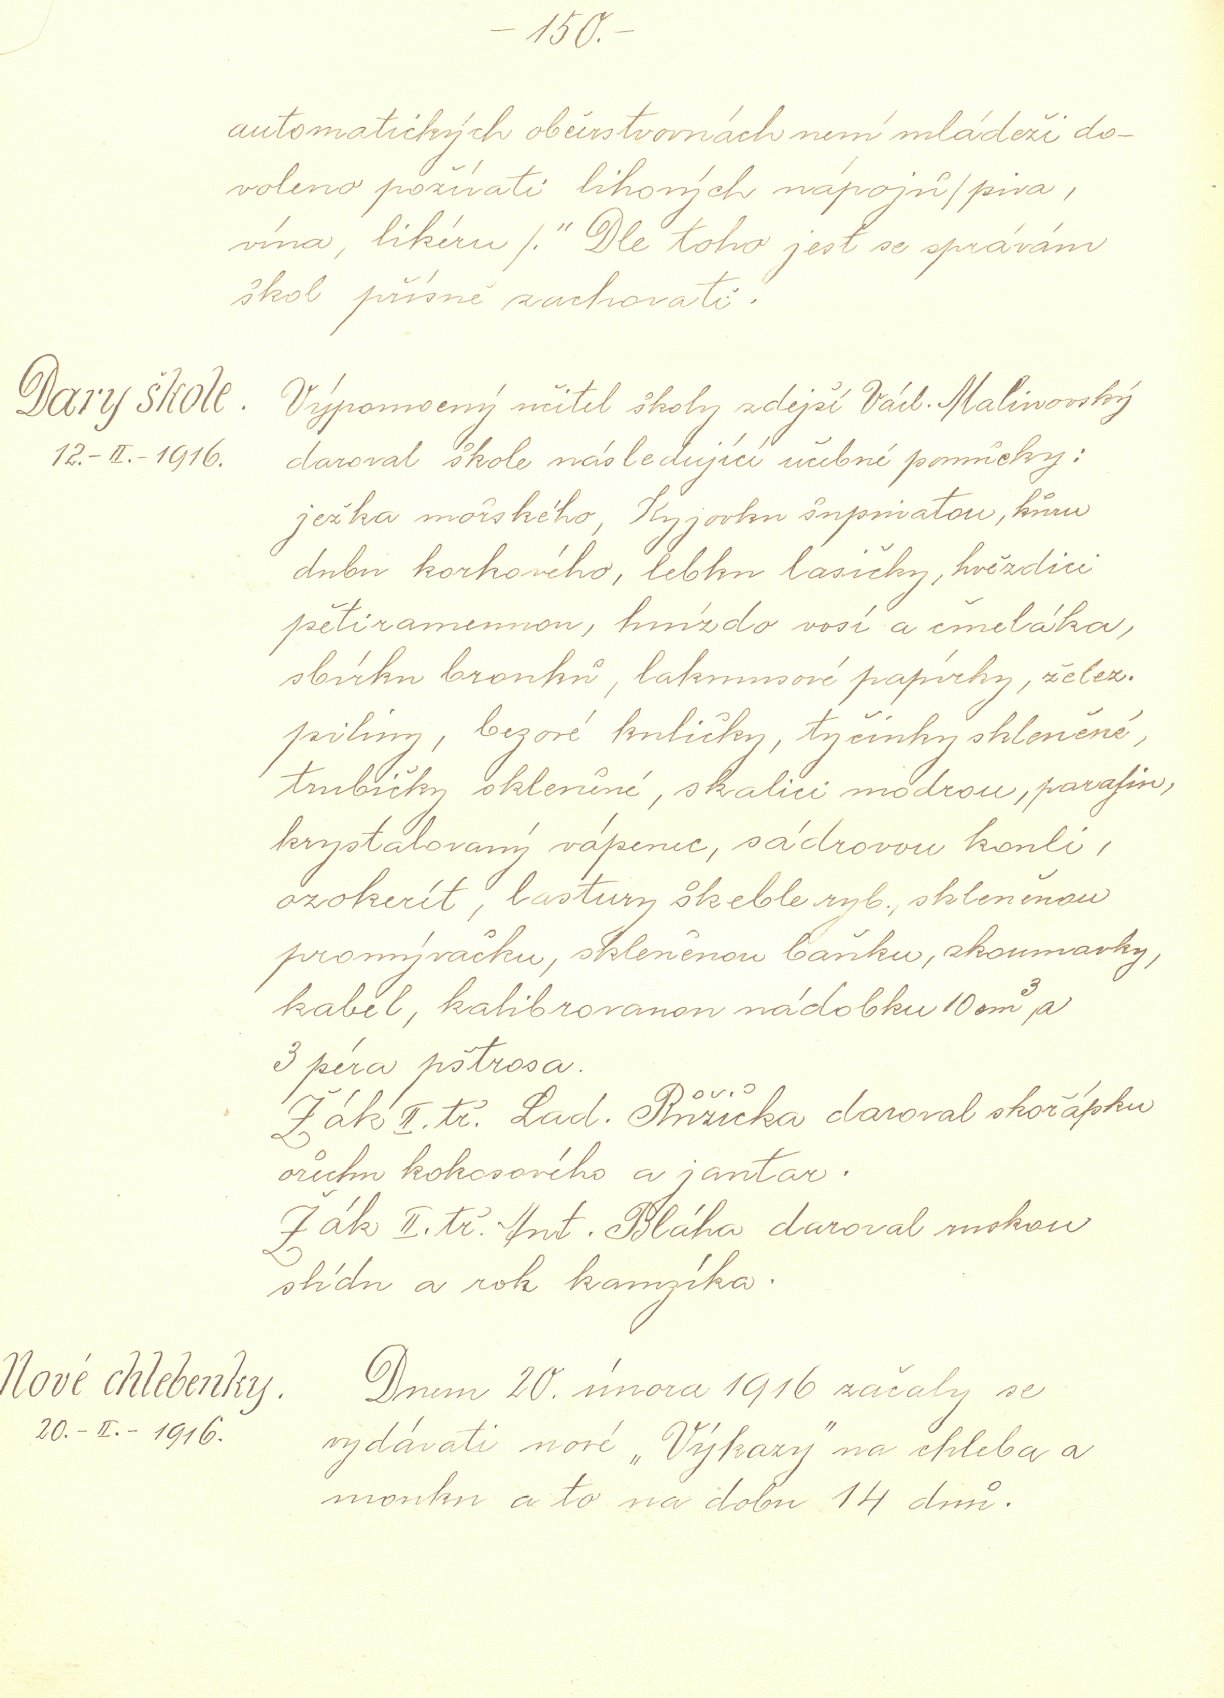 – 150. –
automatických občerstvovnách není mládeži do-
voleno požívati lihových nápojů /piva,
vína, likéru /." Dle toho jest se správám
škol přísně zachovati.
Dary škole.
12.- II. - 1916.
Výpomocný učitel školy zdejší Václ. Malinovský
daroval škole následující učebné pomůcky:
ježka mořského, Kyjovku šupinatou, kůru
dubu korkového, lebku lasičky, hvězdici
pětiramennou, hnízdo vosí a čmeláka,
sbírku brouků, lakmusové papírky, želez.
piliny, bezové kuličky, tyčinky skleněné,
trubičky skleněné, skalici modrou, parafin,
krystalovaný vápenec, sádrovou kouli,
ozokerit, lastury škeble ryb., skleněnou
promývačku, skleněnou baňku, zkoumavky,
kabel, kalibrovanou nádobku 10 cm³, a
3 péra pštrosa.
Žák II. tř. Lad. Růžička daroval skořápku
ořechu kokosového a jantar.
Žák II. tř. Ant. Bláha daroval ruskou
slídu a roh kamzíka.
Nové chlebenky.
20. - II. - 1916.
Dnem 20. února 1916 začaly se
vydávati nové „Výkazy" na chleba a
mouku a to na dobu 14 dnů.